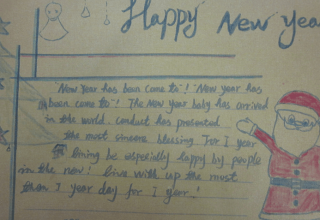 Happy New Year
New Year has been come to! New Year has
been come to! The New Year baby has arrived
in the world. conduct has presented
the most sincere blessing For I year
being be especially happy by people
in the new! live with up the most
than I year day for I year!